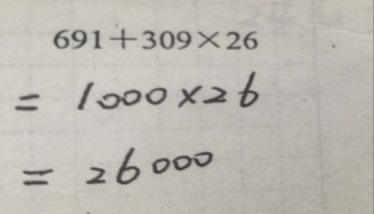 691+309×26
= 1000×26
= 26000